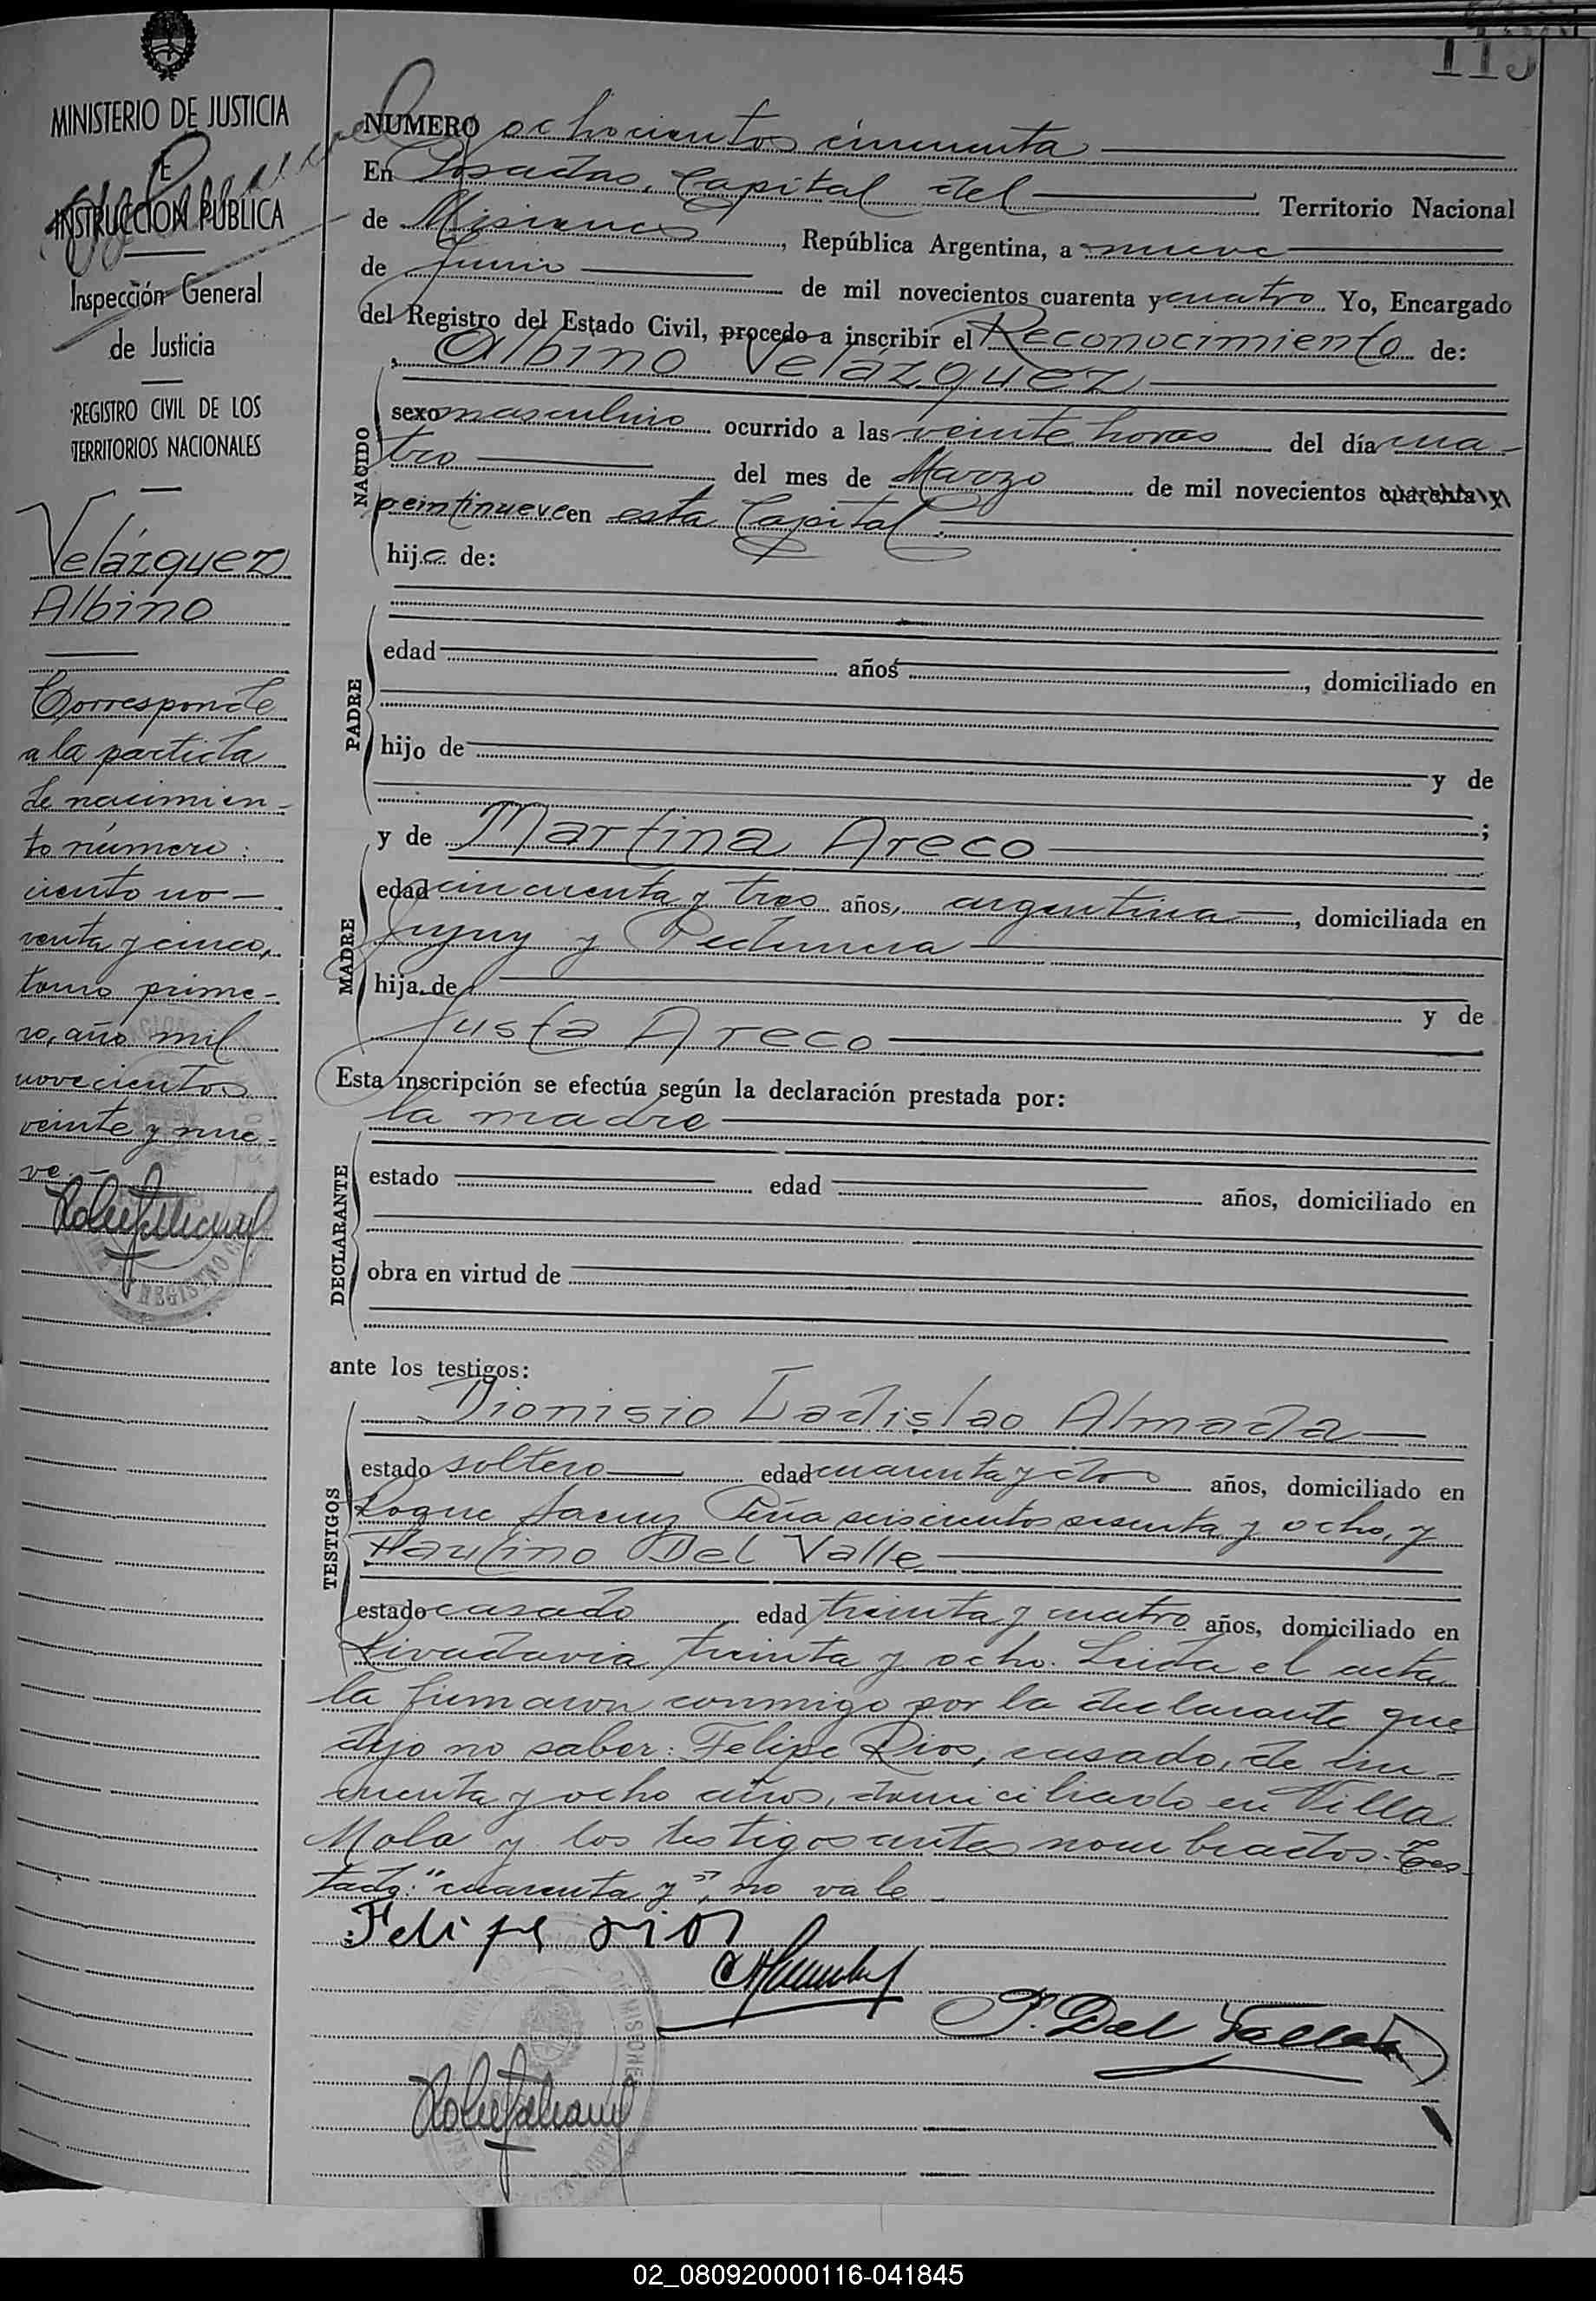 115
MINISTERIO DE JUSTICIA
E
INSTRUCCION PUBLICA
Inspección General
de Justicia
REGISTRO CIVIL DE LOS
TERRITORIOS NACIONALES
Velázquez
Albino
Corresponde
a la partida
de nacimien-
to número:
ciento no-
venta y cinco,
tomo prime-
ro, año mil
novecientos
veinte y nue-
ve.-
NUMERO ochocientos cincuenta
En Posadas, Capital del Territorio Nacional
de Misiones, República Argentina, a nueve
de Junio de mil novecientos cuarenta y cuatro Yo, Encargado
del Registro del Estado Civil, procedo a inscribir el Reconocimiento de:
Albino Velázquez
NACIDO
sexo masculino ocurrido a las veinte horas del día cua-
tro del mes de Marzo de mil novecientos cuarenta y
veintinueve en esta Capital.
hijo de:
PADRE
edad años, domiciliado en
hijo de y de
;
y de Martina Areco
MADRE
edad cincuenta y tres años, argentina, domiciliada en
Jujuy y Pedernera
hija de y de
Justa Areco
Esta inscripción se efectúa según la declaración prestada por:
la madre
DECLARANTE
estado edad años, domiciliado en
obra en virtud de
ante los testigos:
TESTIGOS
Dionisio Ladislao Almada
estado soltero edad cuarenta y dos años, domiciliado en
Roque Saenz Peña seiscientos sesenta y ocho, y
Paulino Del Valle
estado casado edad treinta y cuatro años, domiciliado en
Rivadavia treinta y ocho. Leida el acta
la firmaron conmigo por la declarante que
dijo no saber: Felipe Rios, casado, de cin-
cuenta y ocho años, domiciliado en Villa
Mola y los testigos antes nombrados. Tes-
tado: "cuarenta y", no vale
Felipe rios
P. Del Valle
02_080920000116-041845